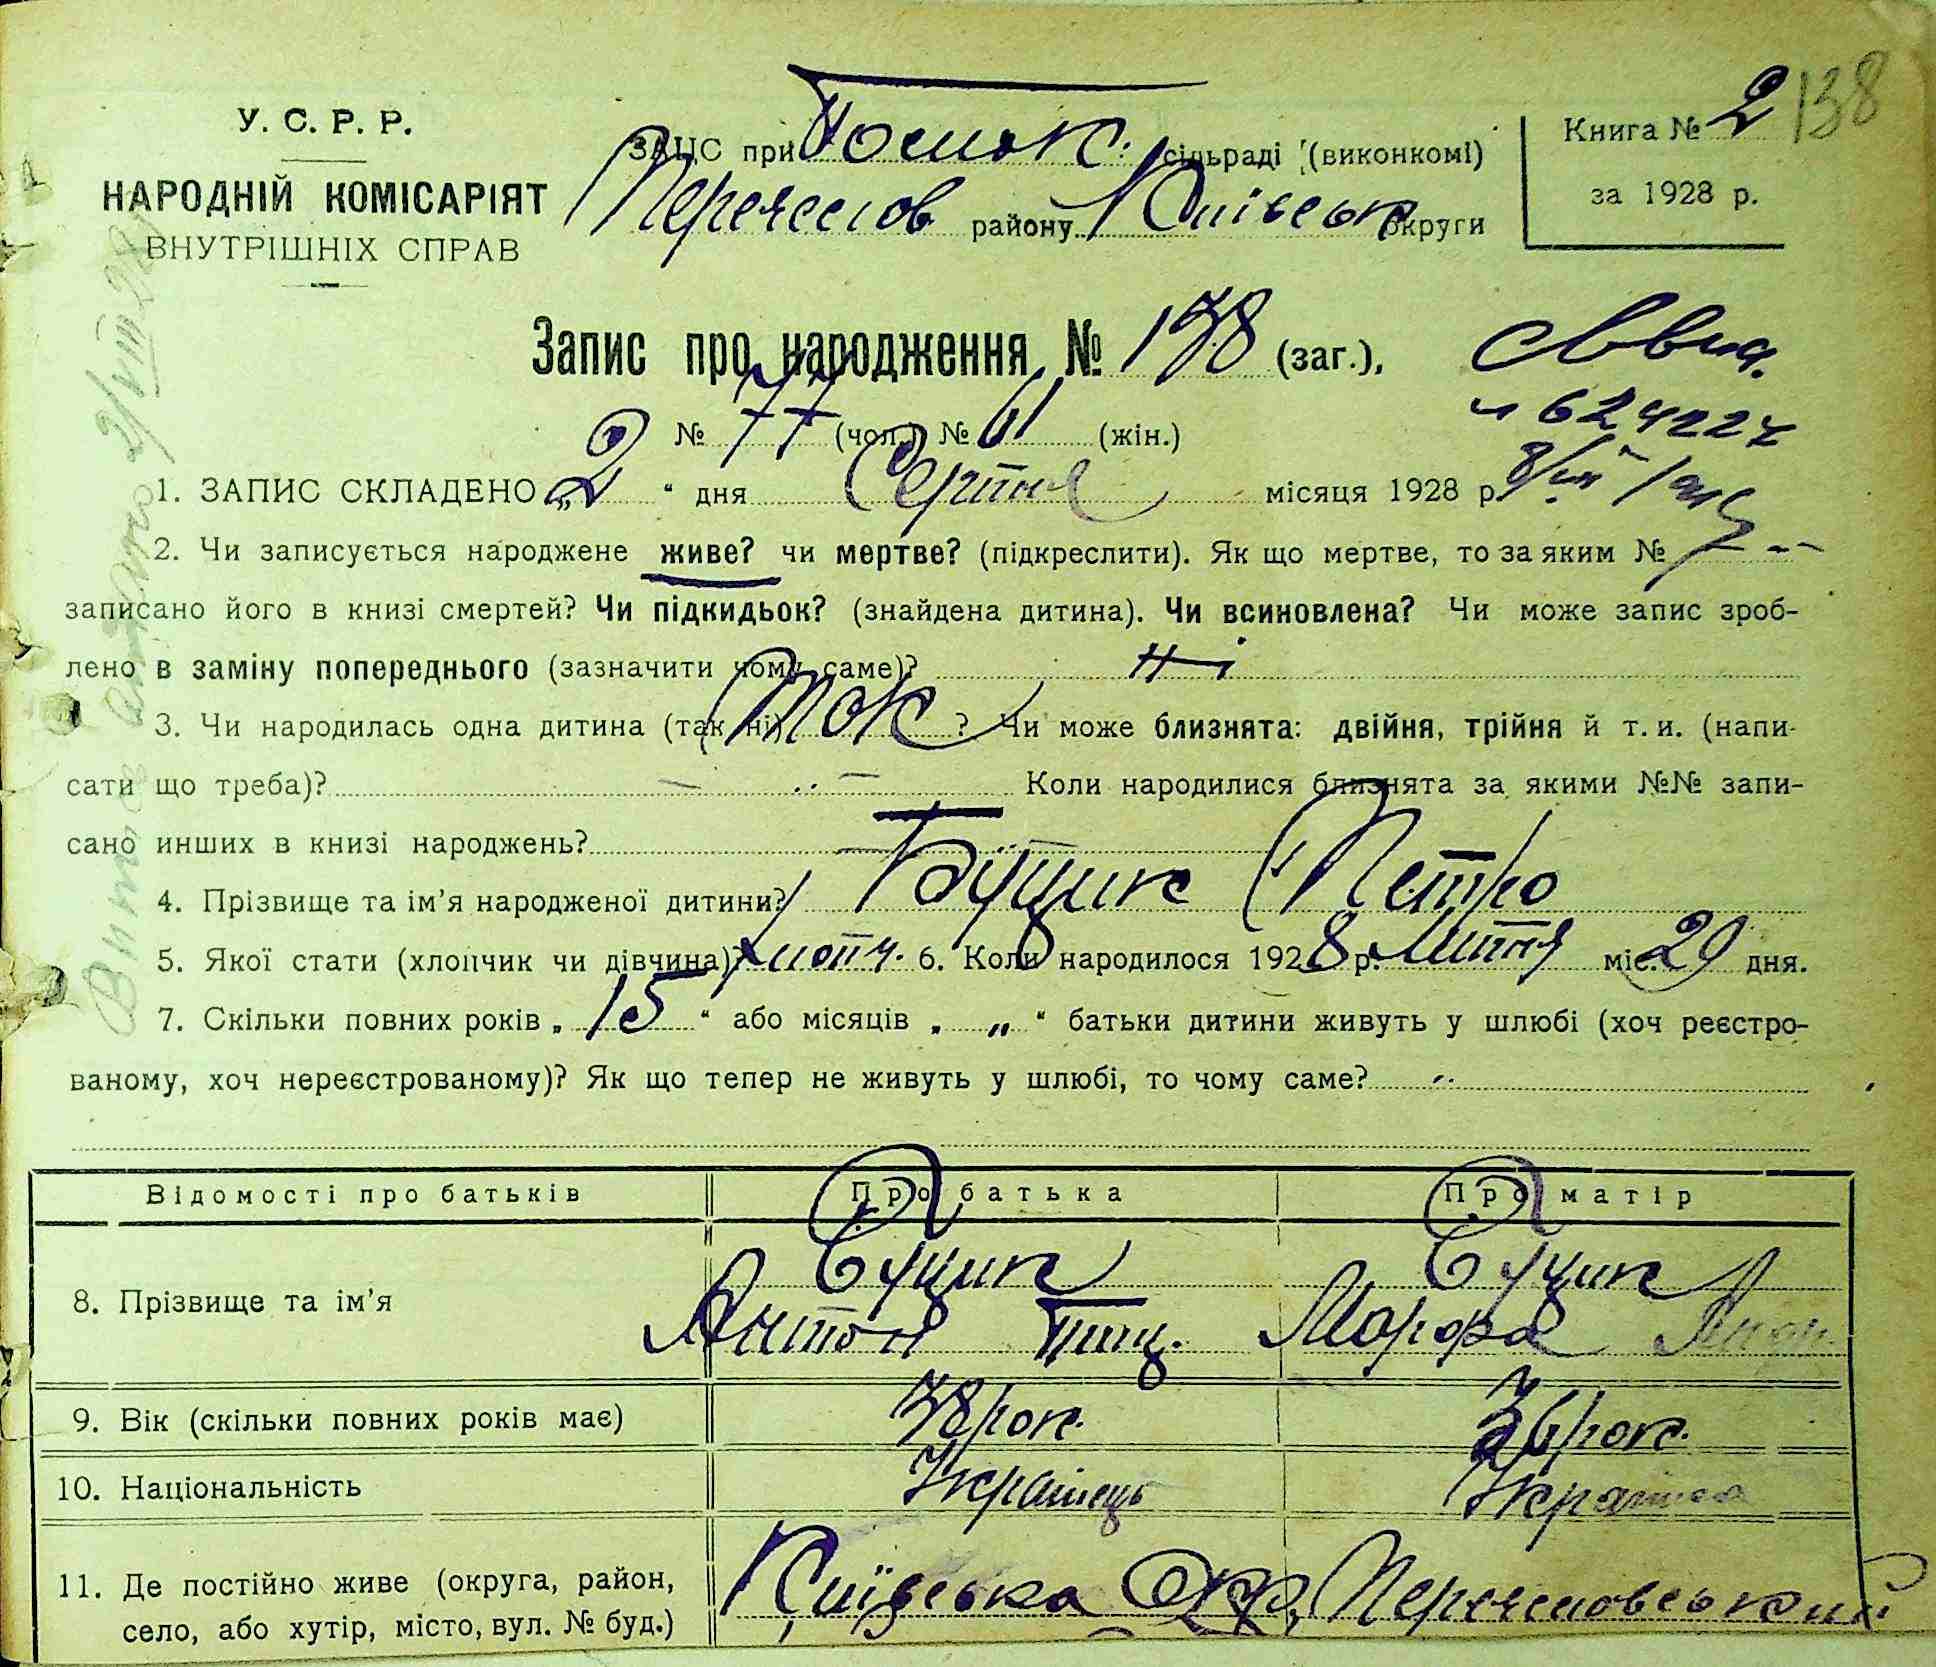 У. С. Р. Р.
НАРОДНІЙ КОМІСАРІЯТ
ВНУТРІШНІХ СПРАВ
ЗАЦС при сільраді (виконкомі)
Переяслов району Київськ округи
Книга № 2 138
за 1928 р.
Запис про народження № 138 (заг.),
№ 77 (чол.) № 61 (жін.)
1. ЗАПИС СКЛАДЕНО „2“ дня Серпня місяця 1928 р.
2. Чи записується народжене живе? чи мертве? (підкреслити). Як що мертве, то за яким №
записано його в книзі смертей? Чи підкидьок? (знайдена дитина). Чи всиновлена? Чи може запис зроб-
лено в заміну попереднього (зазначити чому саме)? Ні
3. Чи народилась одна дитина (так ні) Так ? Чи може близнята: двійня, трійня й т. и. (напи-
сати що треба)? Коли народилися близнята за якими №№ запи-
сано инших в книзі народжень?
4. Прізвище та ім’я народженої дитини? Буцик Петро
5. Якої стати (хлопчик чи дівчина)? хлопч. 6. Коли народилося 1928 р. Липня міс. 29 дня.
7. Скільки повних років „15“ або місяців „ „ “ батьки дитини живуть у шлюбі (хоч реєстро-
ваному, хоч нереєстрованому)? Як що тепер не живуть у шлюбі, то чому саме?
Відомості про батьків Про батька Про матір
8. Прізвище та ім’я Буцик Антон Буцик
9. Вік (скільки повних років має) 38 рок. 36 рок.
10. Національність Українець Українка
11. Де постійно живе (округа, район, Київська Окр, Переясловський
село, або хутір, місто, вул. № буд.)